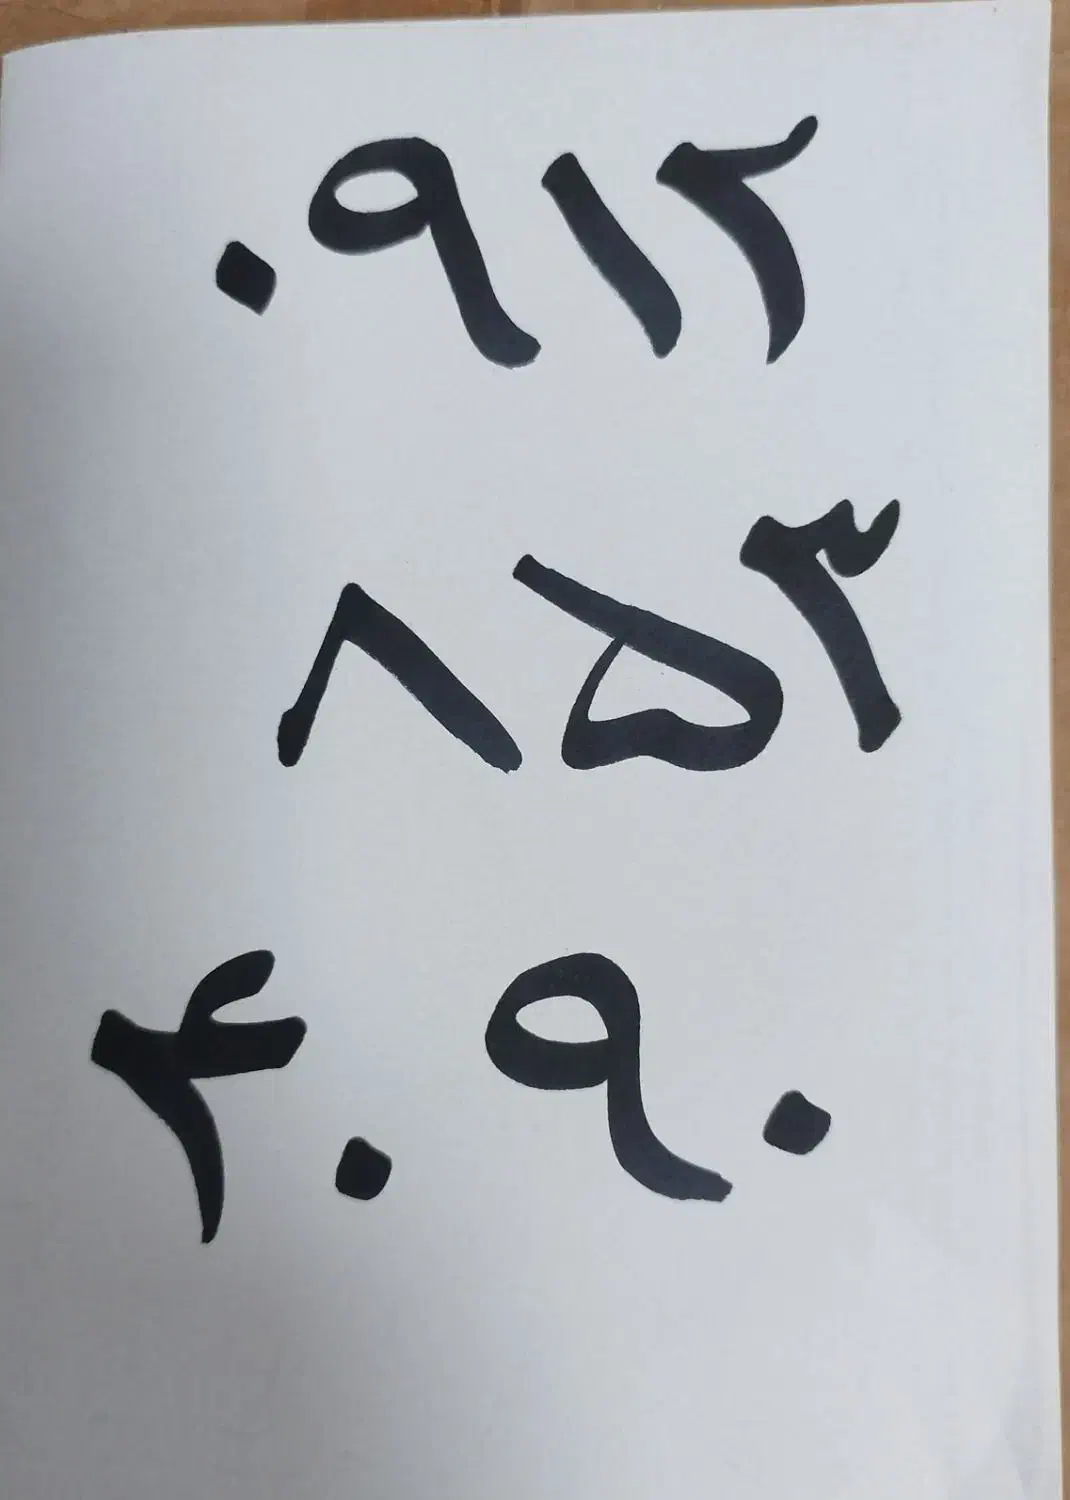 ۰۹۱۲
۸۵۳
۴۰۹۰